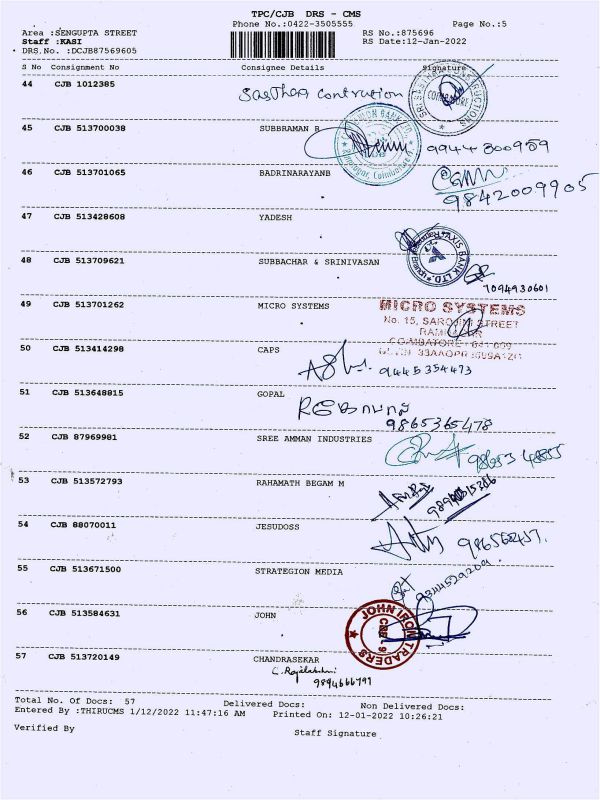 TPC/CJB DRS - CMS
Phone No.:0422-3505555 Page No.:5
Area :SENGUPTA STREET RS No.:875696
Staff :KASI RS Date:12-Jan-2022
DRS.No. :DCJB87569605
S No Consignment No Consignee Details Signature
44 CJB 1012385
45 CJB 513700038 SUBBRAMAN R 9944300959
46 CJB 513701065 BADRINARAYANB
9842009905
47 CJB 513428608 YADESH
AXIS BANK LTD
48 CJB 513709621 SUBBACHAR & SRINIVASAN
7094930601
49 CJB 513701262 MICRO SYSTEMS MICRO SYSTEMS
No. 15, SAROJINI STREET
COIMBATORE - 641 009
50 CJB 513414298 CAPS
9445354473
51 CJB 513648815 GOPAL
9865365478
52 CJB 87969981 SREE AMMAN INDUSTRIES
53 CJB 513572793 RAHAMATH BEGAM M
54 CJB 88070011 JESUDOSS
55 CJB 513671500 STRATEGION MEDIA
56 CJB 513584631 JOHN
JOHN IRON TRADERS
57 CJB 513720149 CHANDRASEKAR
9894666797
Total No. Of Docs: 57 Delivered Docs: Non Delivered Docs:
Entered By :THIRUCMS 1/12/2022 11:47:16 AM Printed On: 12-01-2022 10:26:21
Verified By Staff Signature